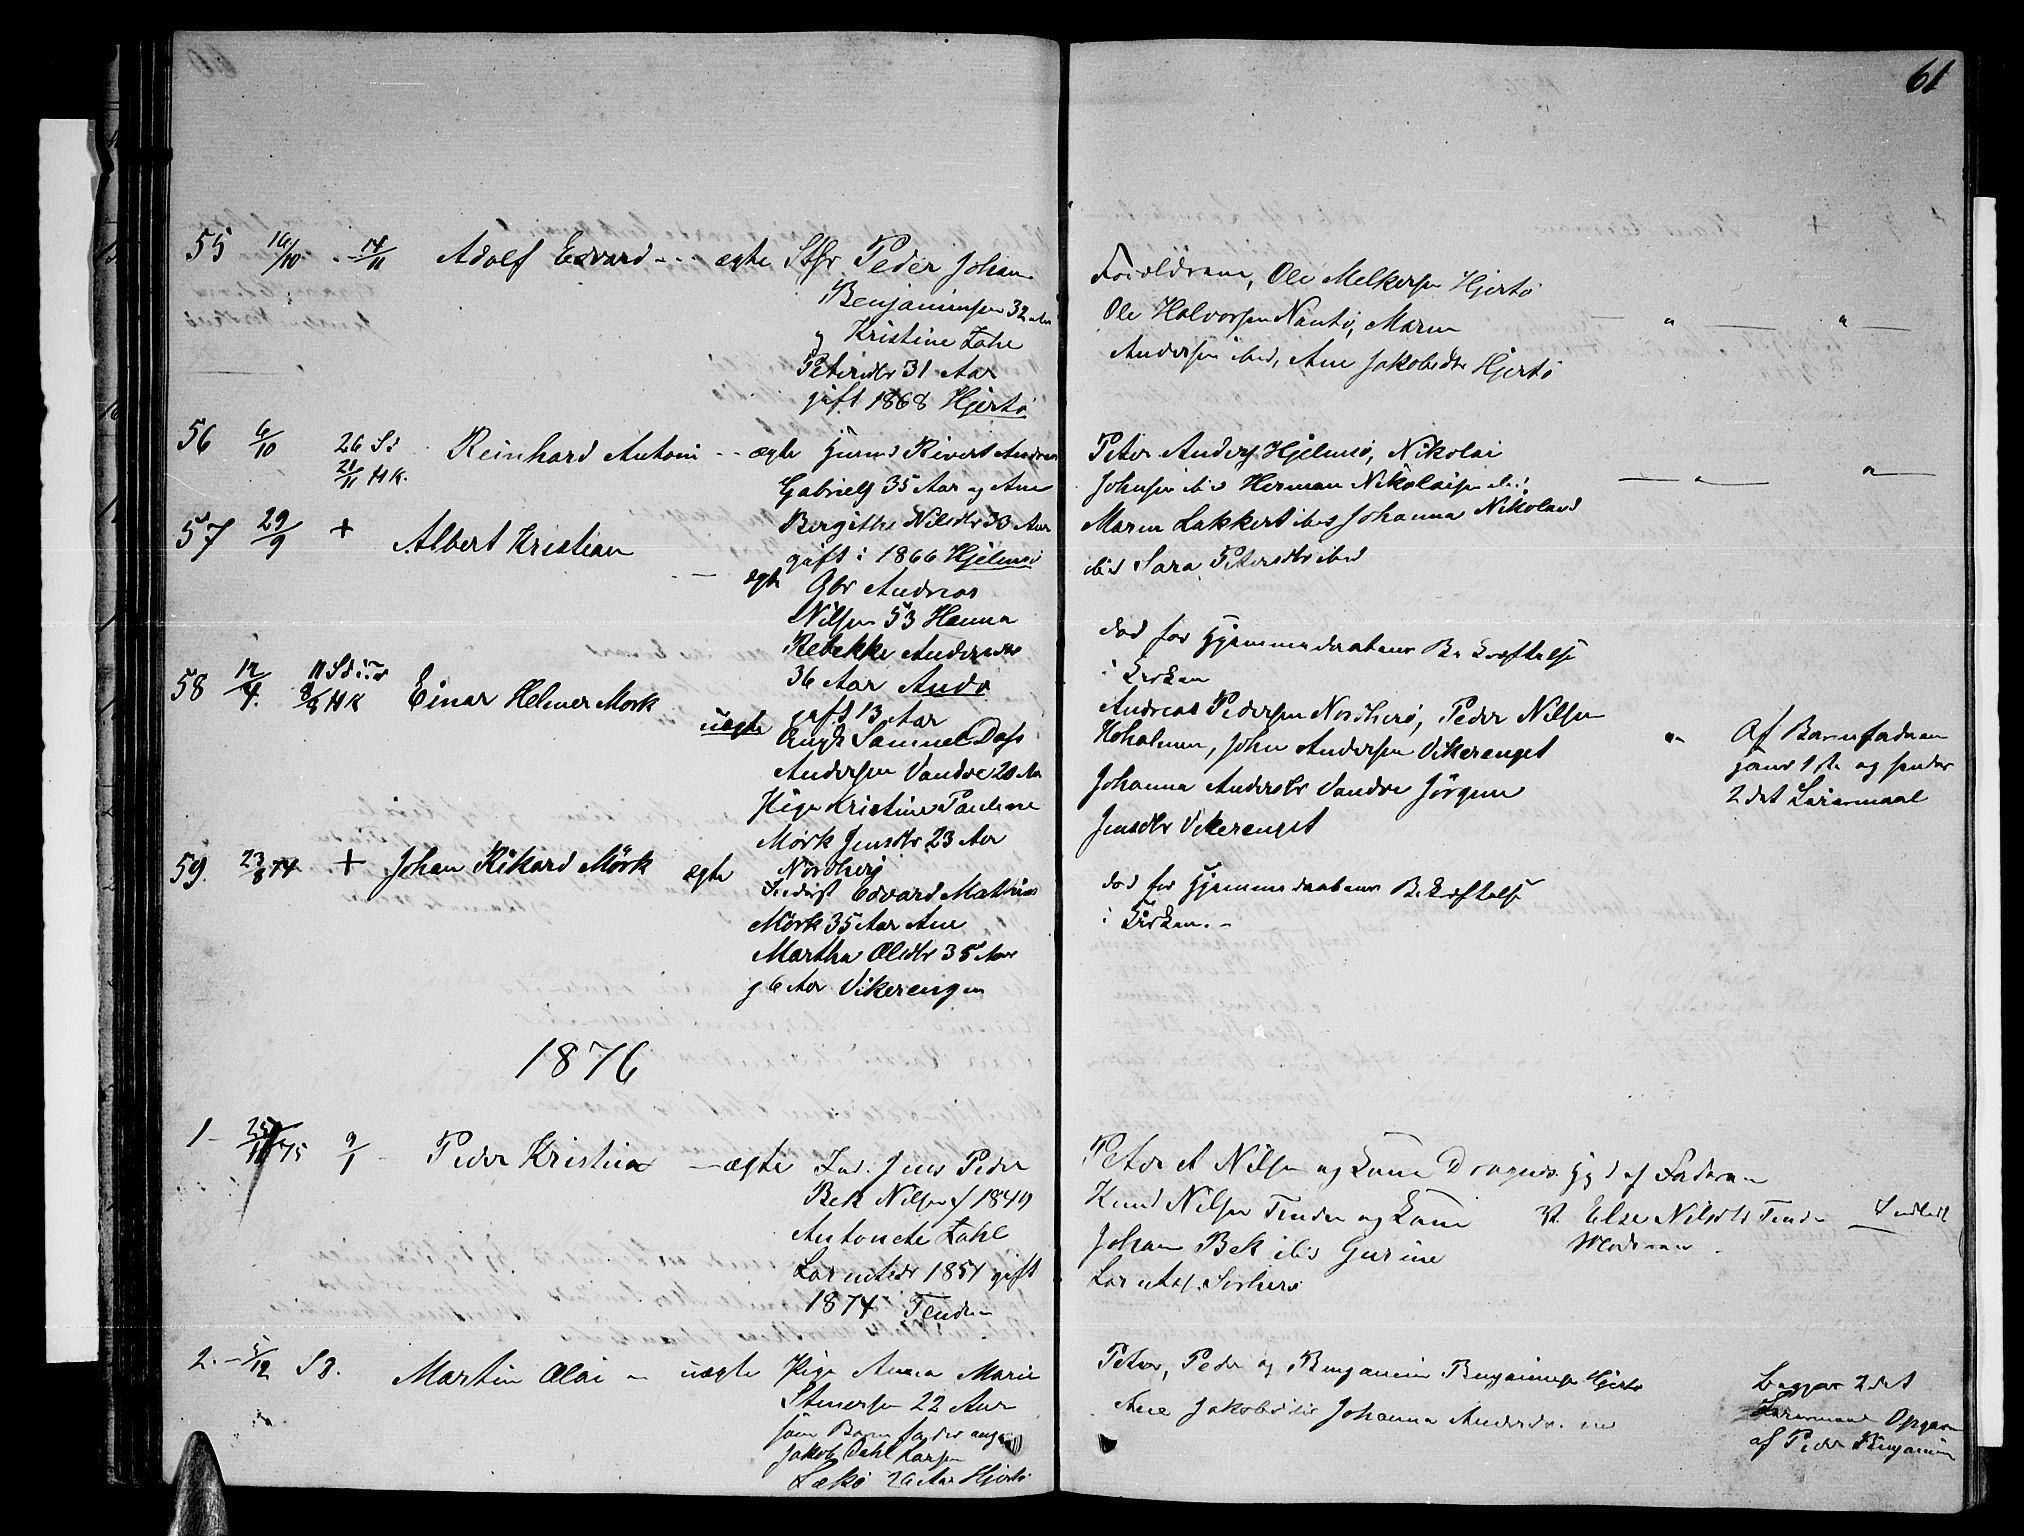 61
55 16/10 14/11 Adolf Edvard - - - ægte Stfr Peder Johan
Benjaminsen 32 Aar
og Kristine Zahl
Petersdtr 31 Aar
gift 1868 Hjertø
56 6/10 26 Si Reinhard Antoni - - ægte
21/11 HK.
Gabriels 35 Aar og Ane
Bergithe Nilsdtr 33 Aar
gift i 1866 Hjelmsø
57 29/9 + Albert Kristian - - ægte
Gbr Andreas
Nilsen 53 Hanna
Rebekke Andersdtr
36 Aar Andø
gift 13 Aar
58 12/4. Einar Helmer Mørk uægte
8/8 HK
Ungk Samuel Dass
Andersen Vandve 20 Aar
Pige Kristine Pauline
Mørk Jensdtr 23 Aar
Nordherø
59. 23/8 74 + Johan Rikard Mørk ægte
Inderst Edvard Mathias
Mørk 35 Aar Ane
Martha Olsdtr 35 Aar
g 6 Aar Vikerengen
1876
1 - 25/11 75 9/1 - Peder Kristian - ægte Ind. Jens Peder
Bek Nilsen f 1849
Antonete Zahl
Lorntsdr 1851 gift
1874 Tenden
2. - 5/12 Sd. Martin Olai - uægte Pige Anna Marie
Stenersen 22 Aar
som Barnefader ang
Jakob Dahl Larsen
26 Aar Hjertø
Forældrene, Ole Melkersen Hjertø
Ole Halvorsen Nautø, Maren
Andersen ibid, Ane Jakobsdtr Hjertø
Peter Anders Hjelmsø, Nikolai
Johnsen ibid Herman Nikolaisen ibid
Maren Lakkert ibid Johanna Nikolaisd
ibid Sara Petersdtr ibid
død før Hjemmedaabens Bekræftelse
i Kirken
Andreas Pedersen Nordherø, Peder Nilsen
Hoholmen, John Andersen Vikerenget
Johanna Andersdtr Vandve Jørgine
Jensdtr Vikerenget
Af Barnefaderen
hans 1ste og hendes
2det Leiermaal
død før Hjemmedaabens Bekræftelse
i Kirken. -
Peter A Nilsen og Kone Dragnes. Hjd af Faderen
Knud Nilsen Tenden og Kone V. Else Nilsdtr Tenden Indledt
Johan Bek ibid Gurine Moderen
Lorntsd. Sørherø
Peter, Peder og Benjamin Benjaminsen Hjertø
Ane Jakobsdtr Johanna Andersdr.
Begges 2det
Leiermaal Opgaven
af Peder Benjamin